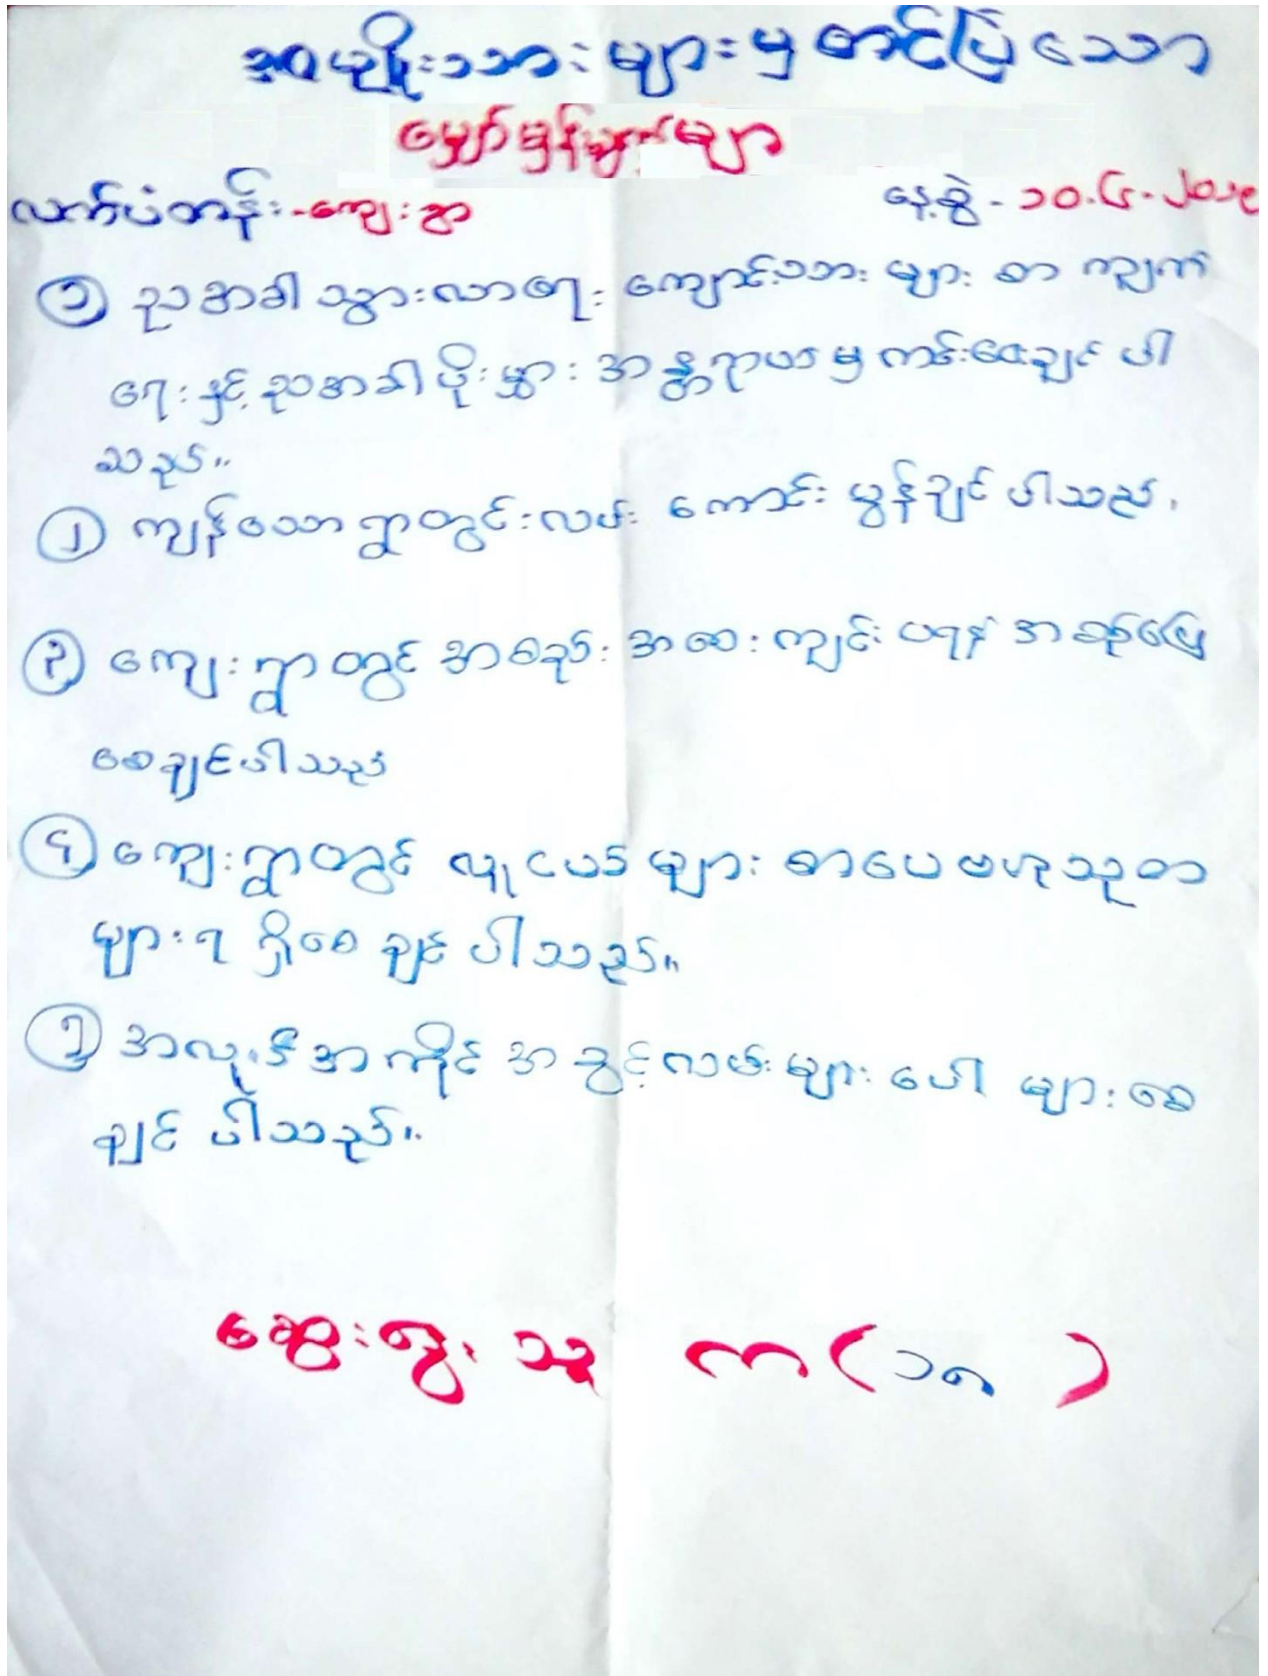 အမျိုးသားများမှတင်ပြသော
မျှော်မှန်းချက်များ
လက်ပံတန်း-ကျေးရွာ နေ့စွဲ - ၁၀.၆.၂၀၁၉
၁ ညအခါသွားလာရေး ကျောင်းသားများ စာကျက်
ရေးနှင့်ညအခါပိုးမွှားအန္တရာယ်မှကင်းဝေးချင်ပါ
သည်။
၂ ကျန်သောရွာတွင်းလမ်း ကောင်းမွန်ချင်ပါသည်။
၃ ကျေးရွာတွင် အစည်းအဝေးကျင်းပရန် အဆင်ပြေ
စေချင်ပါသည်
၄ ကျေးရွာတွင် လူငယ်များ စာပေဗဟုသုတ
များရရှိစေချင်ပါသည်။
၅ အလုပ်အကိုင်အခွင့်လမ်းများပေါများစေ
ချင်ပါသည်။
ဆွေးနွေးသူ ကာ (၁၈)